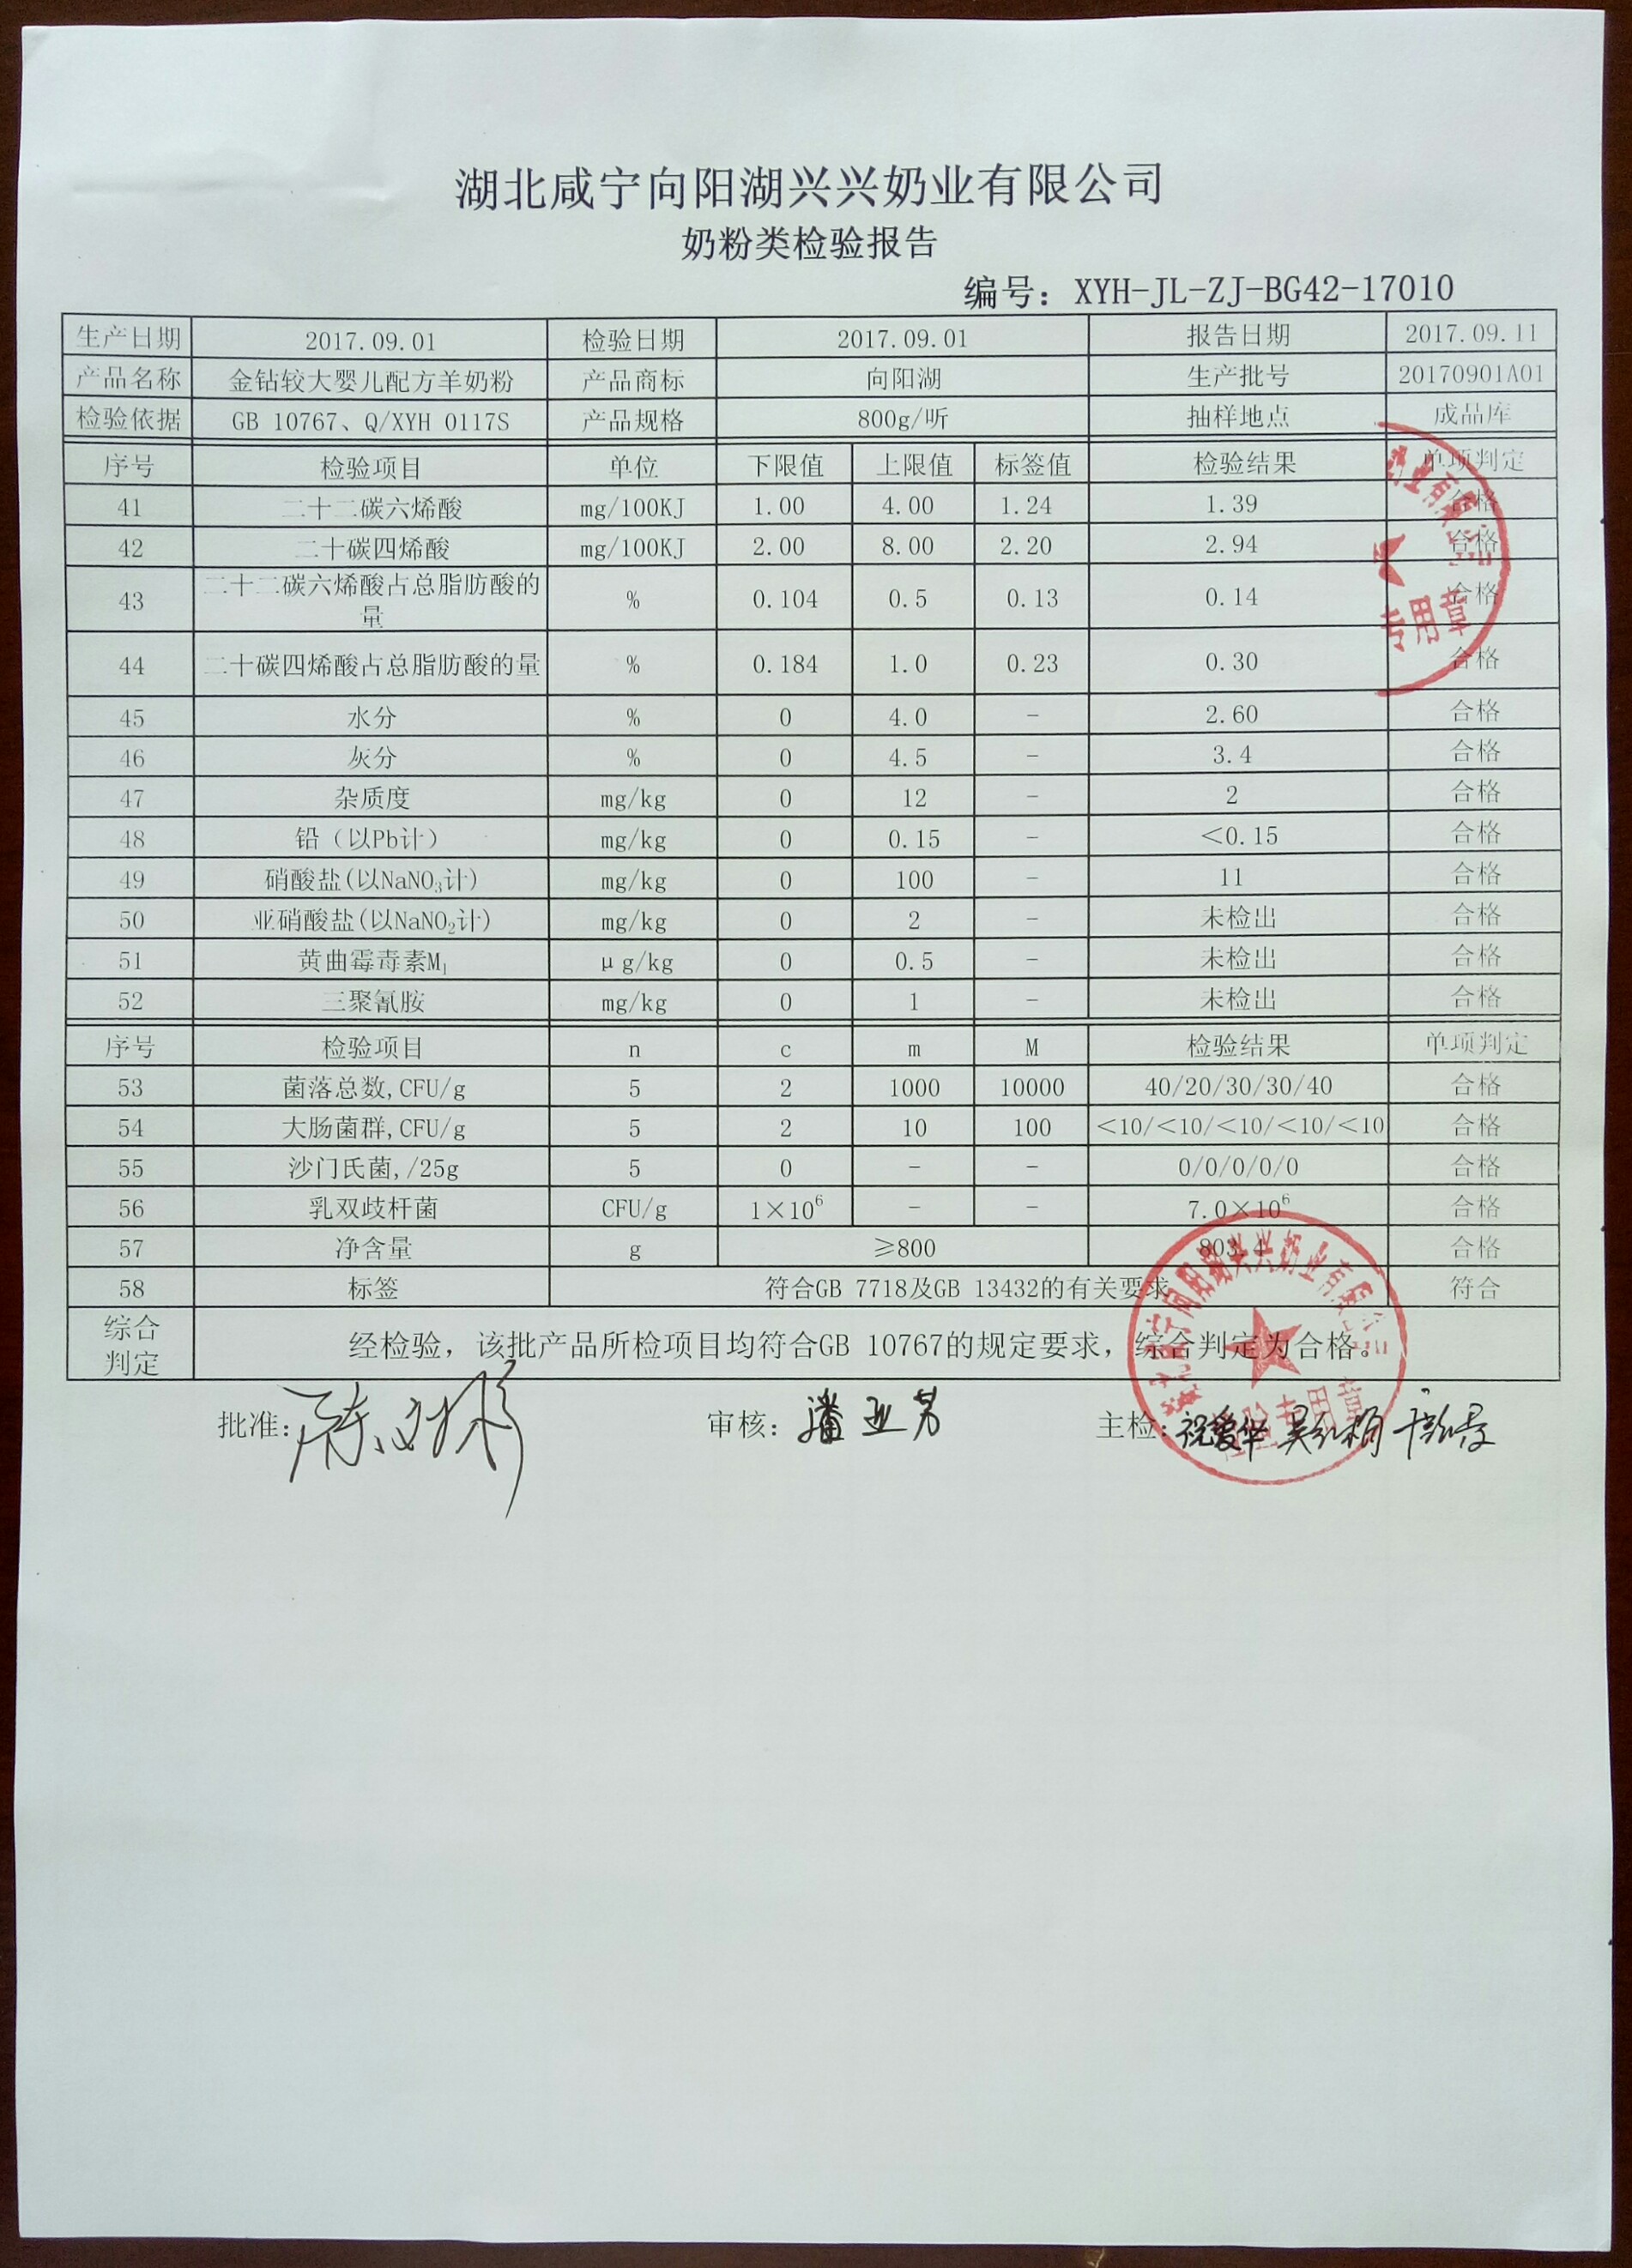 湖北咸宁向阳湖兴兴奶业有限公司
奶粉类检验报告
编号：XYH-JL-ZJ-BG42-17010
生产日期 2017.09.01 检验日期 2017.09.01 报告日期 2017.09.11
产品名称 金钻较大婴儿配方羊奶粉 产品商标 向阳湖 生产批号 20170901A01
检验依据 GB 10767、Q/XYH 0117S 产品规格 800g/听 抽样地点 成品库
序号 检验项目 单位 下限值 上限值 标签值 检验结果 单项判定
41 二十二碳六烯酸 mg/100KJ 1.00 4.00 1.24 1.39 合格
42 二十碳四烯酸 mg/100KJ 2.00 8.00 2.20 2.94 合格
43 二十二碳六烯酸占总脂肪酸的量 % 0.104 0.5 0.13 0.14 合格
44 二十碳四烯酸占总脂肪酸的量 % 0.184 1.0 0.23 0.30 合格
45 水分 % 0 4.0 － 2.60 合格
46 灰分 % 0 4.5 － 3.4 合格
47 杂质度 mg/kg 0 12 － 2 合格
48 铅（以Pb计） mg/kg 0 0.15 － ＜0.15 合格
49 硝酸盐(以NaNO₃计) mg/kg 0 100 － 11 合格
50 亚硝酸盐(以NaNO₂计) mg/kg 0 2 － 未检出 合格
51 黄曲霉毒素M₁ μg/kg 0 0.5 － 未检出 合格
52 三聚氰胺 mg/kg 0 1 － 未检出 合格
序号 检验项目 n c m M 检验结果 单项判定
53 菌落总数,CFU/g 5 2 1000 10000 40/20/30/30/40 合格
54 大肠菌群,CFU/g 5 2 10 100 ＜10/＜10/＜10/＜10/＜10 合格
55 沙门氏菌,/25g 5 0 － － 0/0/0/0/0 合格
56 乳双歧杆菌 CFU/g 1×10⁶ － － 7.0×10⁶ 合格
57 净含量 g ≥800 803.4 合格
58 标签 符合GB 7718及GB 13432的有关要求 符合
综合判定 经检验，该批产品所检项目均符合GB 10767的规定要求，综合判定为合格。
批准: 审核: 潘亚芳 主检: 祝爱华
奶业有限公司
专用章
湖北咸宁向阳湖兴兴奶业有限公司
检验专用章